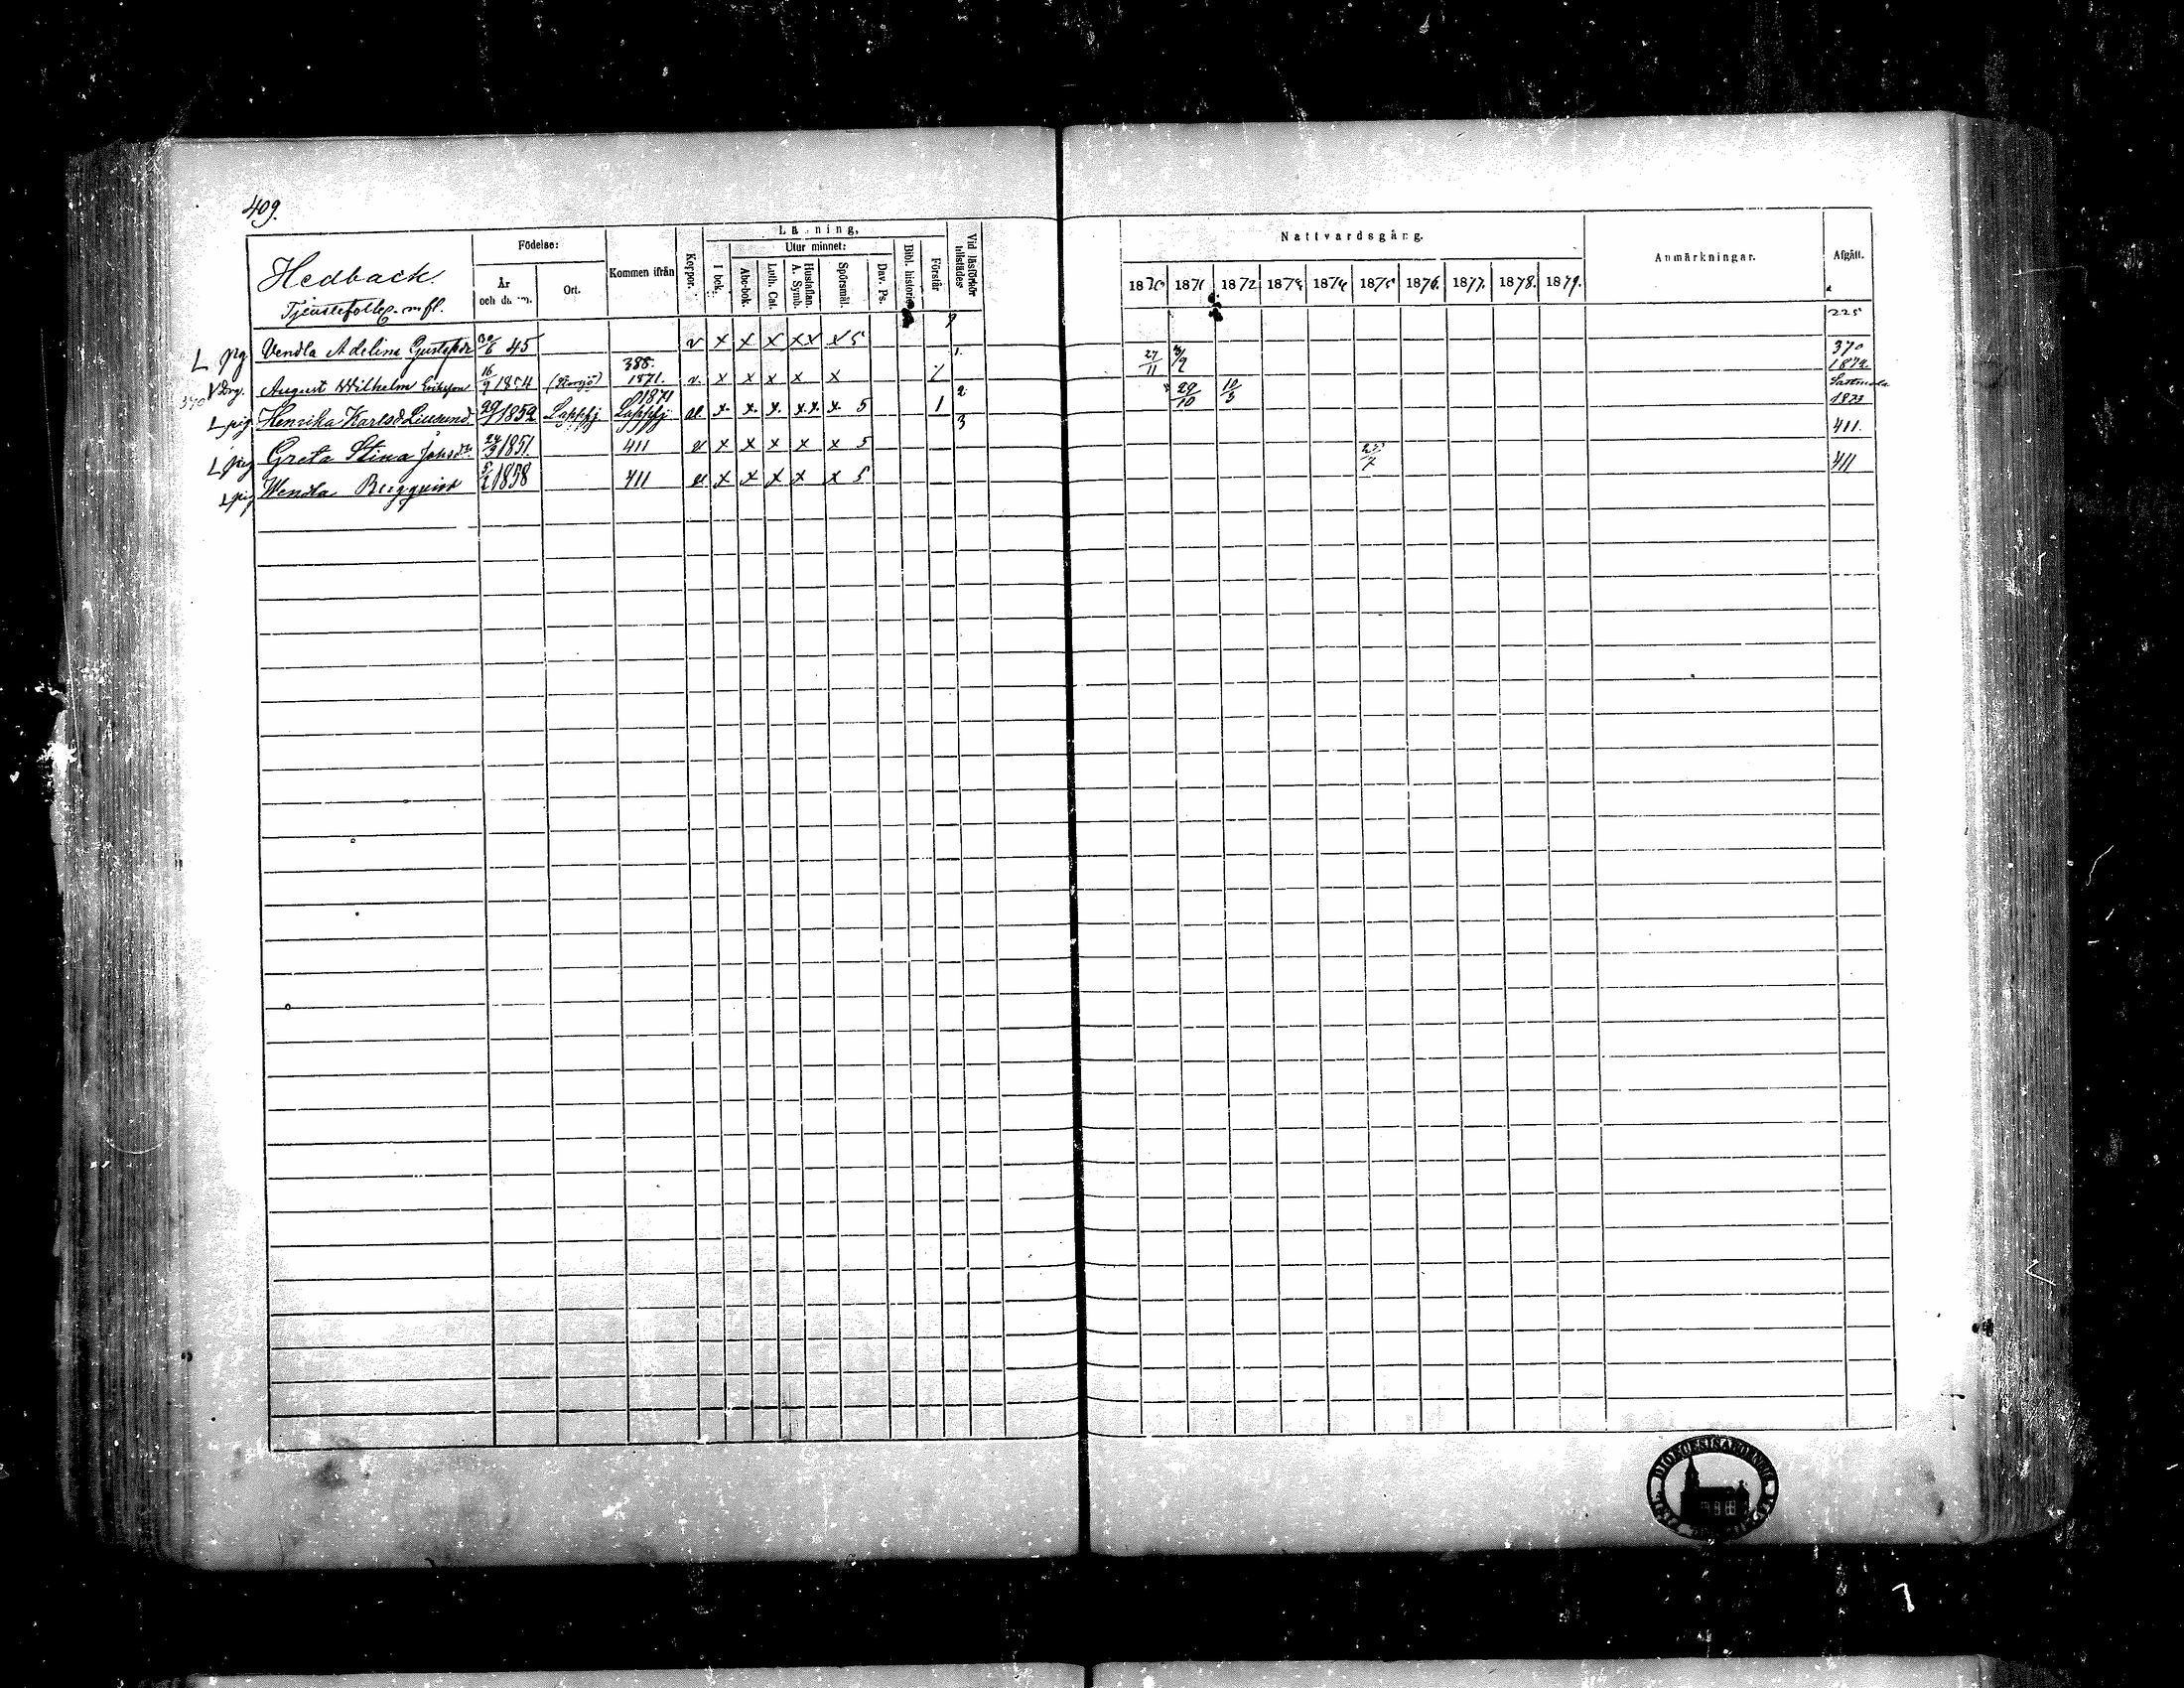 409.
Hedback
Tjenstefolk m.fl.
Födelse:
År och dat m.
Ort.
Kommen ifrån
Koppor.
Läsning,
I bok.
Utur minnet:
Abc-bok.
Luth. Cat.
Hustaflan. A. Symb.
Spörsmål.
Dav. Ps.
Bibl. historie
Förstår
Vid läsförhör tillstädes
Nattvardsgång.
1870 1871 1872 1873 1874 1875 1876. 1877. 1878. 1879.
Anmärkningar.
Afgått.
L pig Vendla Adelina 30/6 45 v x x x xx x 5 225
Drg. August Wilhelm Eriksson 16/9 1854 388. 1871. v. x x x x x 1. 27/11 370 1872.
370
L pig Henrika Karlsd 29/1 1852 Lappfj 1871 Lappfj x. x. x. x.x. x. 5 1 2 29/10 10/3 Sastmola 1873
L pig Greta Stina Johsdr 24/3 1851. 411 x x x x x 5 3 411.
L pig Wendla Bergqvist 5/2 1858 411 x x x x x 5 25/7 411